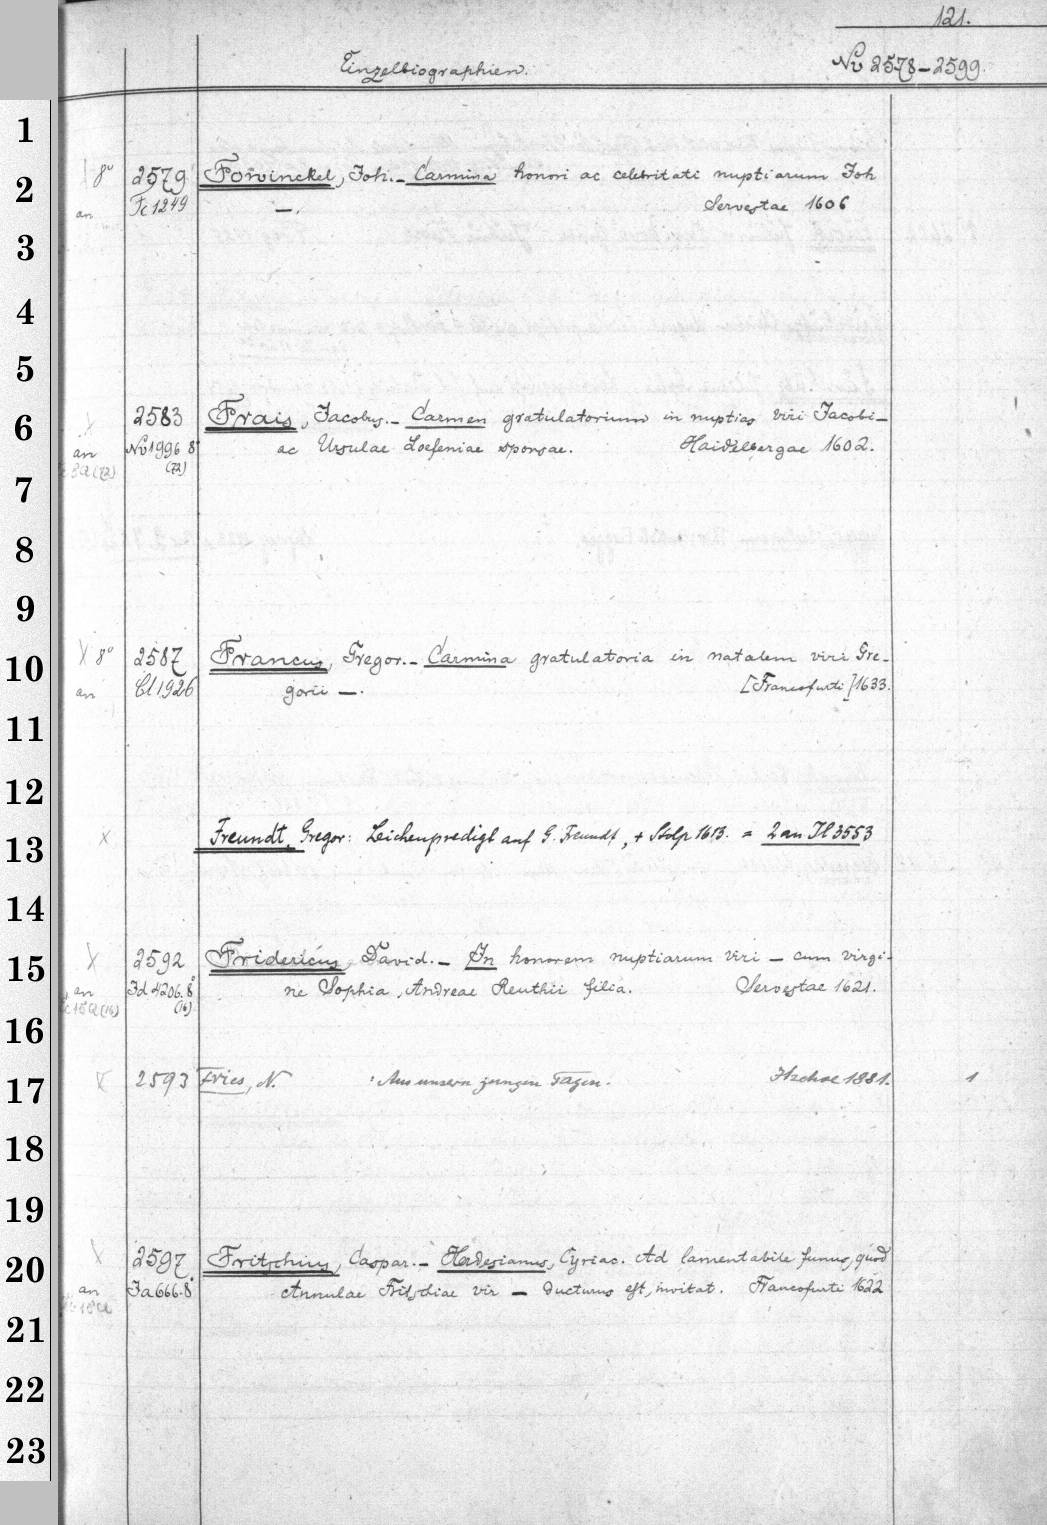 121.
Einzelbiographien.
Nv 2578-2599.
1
2
3
4
5
6
7
8
9
10
11
12
13
14
15
16
17
18
19
20
21
22
23
8° 2579 Forwinckel, Joh. - Carmina honori ac celebritati nuptiarum Joh
an Fc 1249 —. Servestae 1606
2583 Frais, Jacobus. - Carmen gratulatorium in nuptias viri Jacobi -
an Nv 1996 8° ac Ursulae Loefeniae sponsae. Haidelbergae 1602.
(72)
X 8° 2587 Francus, Gregor. - Carmina gratulatoria in natalem viri Gre-
an Cl 1926 gorii —. [Francofurti] 1633.
x Freundt, Gregor: Leichenpredigt auf G. Freundt, + Stolp 1613. = 2 an Jl 3553
X 2592 Fridericus, David. - In honorem nuptiarum viri — cum virgi-
an Jd 4206.8° ne Sophia, Andreae Reuthii filia. Servestae 1621.
(16)
x 2593 Fries, N. : Aus unsern jungen Tagen. Itzehoe 1881. 1
X 2597 Fritschius, Caspar. - Hadesianus, Cyriac. Ad lamentabile funus, quod
an Ja 666.8° Annulae Fritschiae vir — ducturus est, invitat. Francofurti 1622